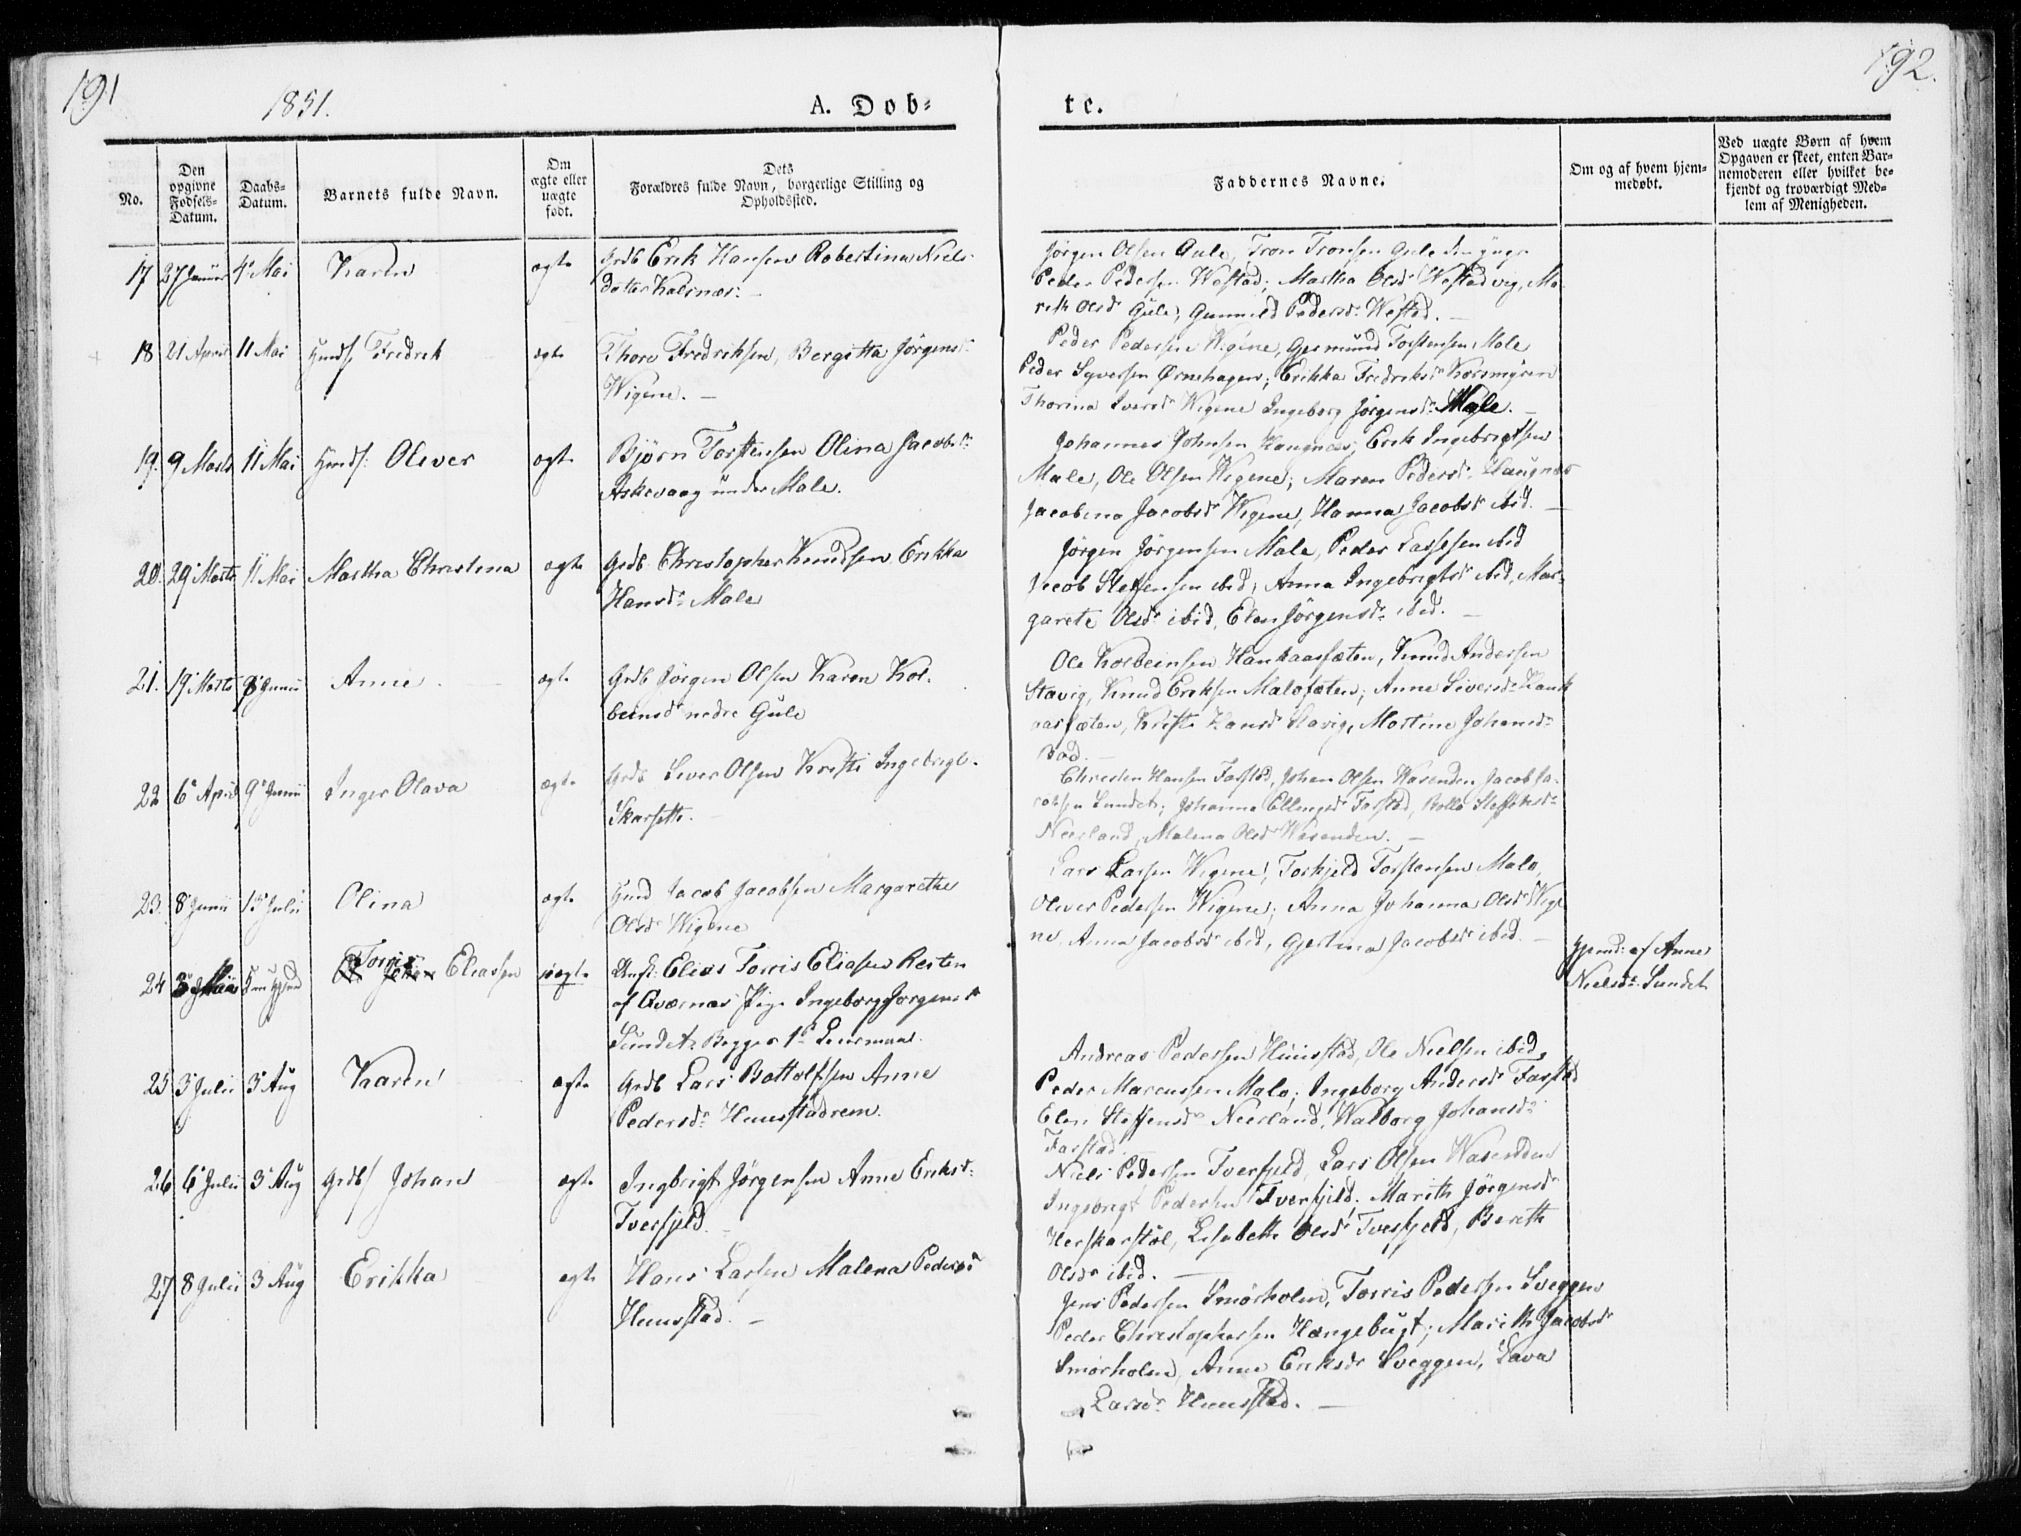 191
192.
1851.
A. Dob-
te.
No.
Den opgivne Fødsels-Datum.
Daabs-Datum.
Barnets fulde Navn.
Om ægte eller uægte født.
Dets Forældres fulde Navn, borgerlige Stilling og Opholdssted.
Faddernes Navne.
Om og af hvem hjemmedøbt.
Ved uægte Børn af hvem Opgaven er skeet, enten Barnemoderen eller hvilket bekjendt og troværdigt Medlem af Menigheden.
17 27 Januar 4 Mai Karen ægte Grdb Erik Hansen Robertina Niels-
datter Kalsnæs. –
Jørgen Olsen Gule, Tron Tronsen Gule den yngr
Peder Pedersen Westad; Martha Olsdr Westadvig, Ma
rith Olsdr Gule, Gunnild Pedersdr Westad. –
18 21 April 11 Mai Huusm Fredrik ægte Thore Fredriksen, Bergitta Jørgensdr
Wigene. –
Peder Pedersen Wigene, Germund Torstensen Male
Peder Syversen Ørnehagen; Erikka Fredriksdr Korsmyren
Thorina Iversdr Wigene Ingeborg Jørgensdr Male. –
19. 9 Marts 11 Mai Huusm: Oliver ægte Bjørn Torstensen Olina Jacobsdr
Askevaag under Male.
Johannes Johnsen Haugnæs, Erik Ingebrigtsen
Male, Ole Olsen Wigene; Maren Pedersdr Haugnæs
Jacobina Jacobsdr Wigene, Hanna Jacobsdr ibid. –
20. 29 Marts 11 Mai Martha Christina ægte Grdb. Christopher Knudsen Erikka
Hansdr Male
Jørgen Jørgensen Male, Peder Lassesen ibid
Jacob Steffensen ibid; Anna Ingebrigtsdr ibid, Mar-
garete Olsdr ibid, Elen Jørgensdr ibid. –
21. 19 Marts 9 Junii Anne ægte Grdb Jørgen Olsen Karen Kol-
beinsdr nedre Gule
Ole Kolbeinsen Haukaasfæten, Knud Andersen
Stavig, Knud Eriksen Malofæten; Anne Siversdr Hauk
aasfæten, Kristi Hansdr Stavig, Martine Johansdr
Bad. –
22 6 April 9 Junii Inger Olava ægte Grdb Siver Olsen Kristi Ingebrigts-
Skarsette. –
Christen Hansen Farstad, Johan Olsen Wasenden, Jacob Ja-
cobsen Sundet; Johanna Ellingsdr Farstad, Rolle Steffensdr
Neerland, Malena Olsdr Wasenden. –
23. 8 Junii 13 Julii Olina ægte Huusm Jacob Jacobsen Margarethe
Olsdr Wigene
Lars Larsen Wigene, Torkjeld Torstensen Male,
Oliver Pedersen Wigene; Anna Johanna Olsdr Wige
ne, Anna Jacobsdr ibid, Gjertina Jacobsdr ibid. –
24 3 Mai Torris Eliassen uægte Ungk: Elias Torris Eliasen Resten
af Averøens Pige Ingeborg Jørgensdr
Sundet. Begges 1ste Leiermaal.
Hjemd: af Anne
Nielsdr Sundet
25 3 Julii 3 Aug Karen ægte Grdb Lars Bottolfsen Anne
Pedersdr Hunsstadrem.
Andreas Pedersen Hunsstad, Ole Nielsen ibid,
Peder Marcussen Male; Ingeborg Andersdr Farstad
Elen Steffensdr Neerland, Walborg Johansdr
Farstad. –
26 6 Julii 3 Aug Grdb Johan ægte Ingbrigt Jørgensen Anne Eriksdr
Tverfjeld. –
Niels Pedersen Tverfjeld, Lars Olsen Wasenden
Ingebrigt Pedersen Tverfjeld. Marith Jørgensdr
Herskarstøl, Lisabeth Olsdr Tverfjeld, Bereth
Olsdr ibid. –
27 8 Julii 3 Aug Erikka ægte Hans Larsen Malena Pedersdr
Hunsstad. –
Jens Pedersen Smørholm, Torris Pedersen Sveggen
Peder Christophersen Hængebugt; Marith Jacobsdr
Smørholm, Anne Eriksdr Sveggen, Lava
Larsdr Hunsstad. –